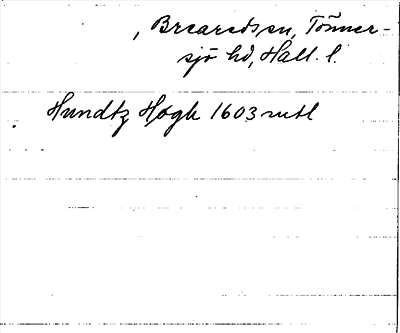 , Breareds sn, Tönner-
sjö hd, Hall. l.
Hundtz Hogh 1603 rutl